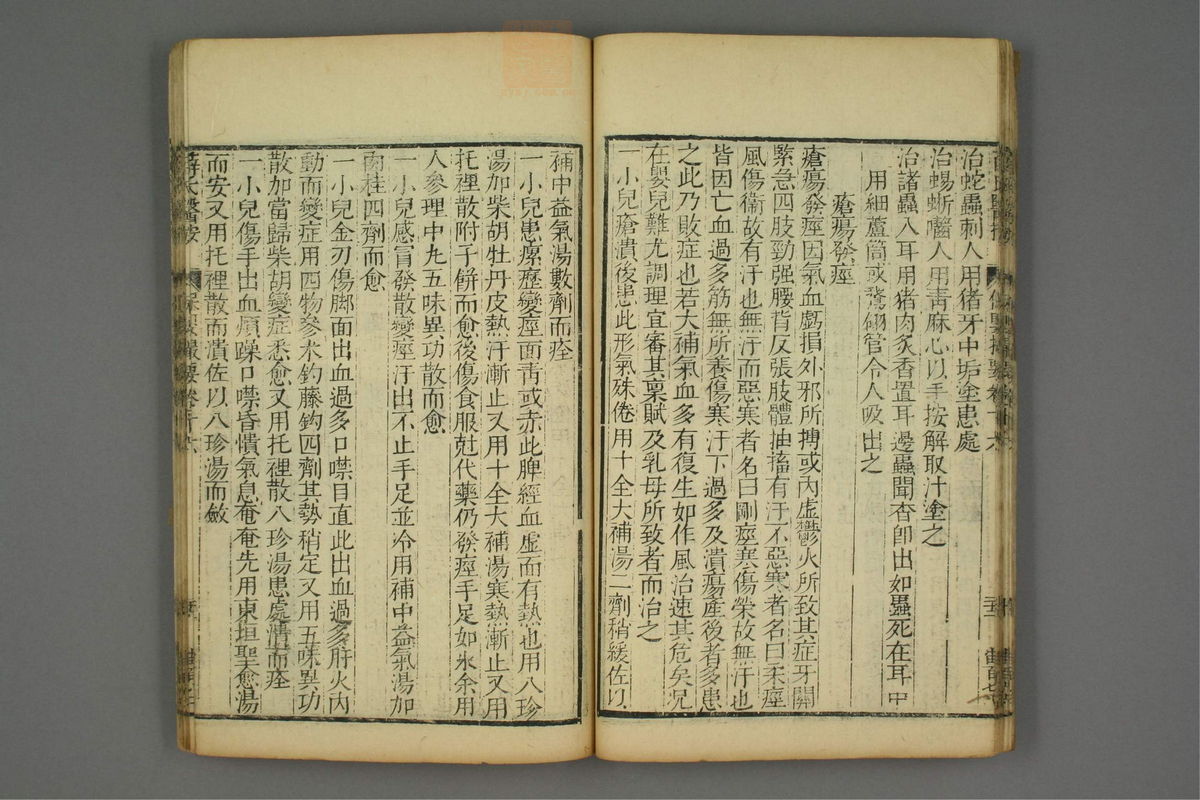 治蛇蟲刺人用猪牙中垢塗患處
治蜴蜥嚙人用青麻心以手按解取汁塗之
治諸蟲入耳用猪肉炙香置耳邊蟲聞香即出如蟲死在耳中
用細蘆筒或鵞翎管令人吸出之
瘡瘍發痙
瘡瘍發痙因氣血虧損外邪所搏或內虛鬱火所致其症牙關
緊急四肢勁强腰背反張肢體抽搐有汗不惡寒者名曰柔痙
風傷衞故有汗也無汗而惡寒者名曰剛痙寒傷榮故無汗也
皆因亡血過多筋無所養傷寒汗下過多及潰瘍產後者多患
之此乃敗症也若大補氣血多有復生如作風治速其危矣况
在嬰兒難尤調理宜審其稟賦及乳母所致者而治之
一小兒瘡潰後患此形氣殊倦用十全大補湯二劑稍緩佐以
補中益氣湯數劑而痊
一小兒患瘰癧變痙面青或赤此脾經血虛而有熱也用八珍
湯加柴胡牡丹皮熱汗漸止又用十全大補湯寒熱漸止又用
托裡散附子餅而愈後傷食服尅伐藥仍發痙手足如氷余用
人參理中丸五味異功散而愈
一小兒感冒發散變痙汗出不止手足並冷用補中益氣湯加
肉桂四劑而愈
一小兒金刃傷脚面出血過多口噤目直此出血過多肝火內
動而變症用四物參术釣藤鈎四劑其勢稍定又用五味異功
散加當歸柴胡變症悉愈又用托裡散八珍湯患處潰而痊
一小兒傷手出血煩躁口噤昏憒氣息奄奄先用東垣聖愈湯
而安又用托裡散而潰佐以八珍湯而斂
薛氏醫按
保嬰撮要卷十六